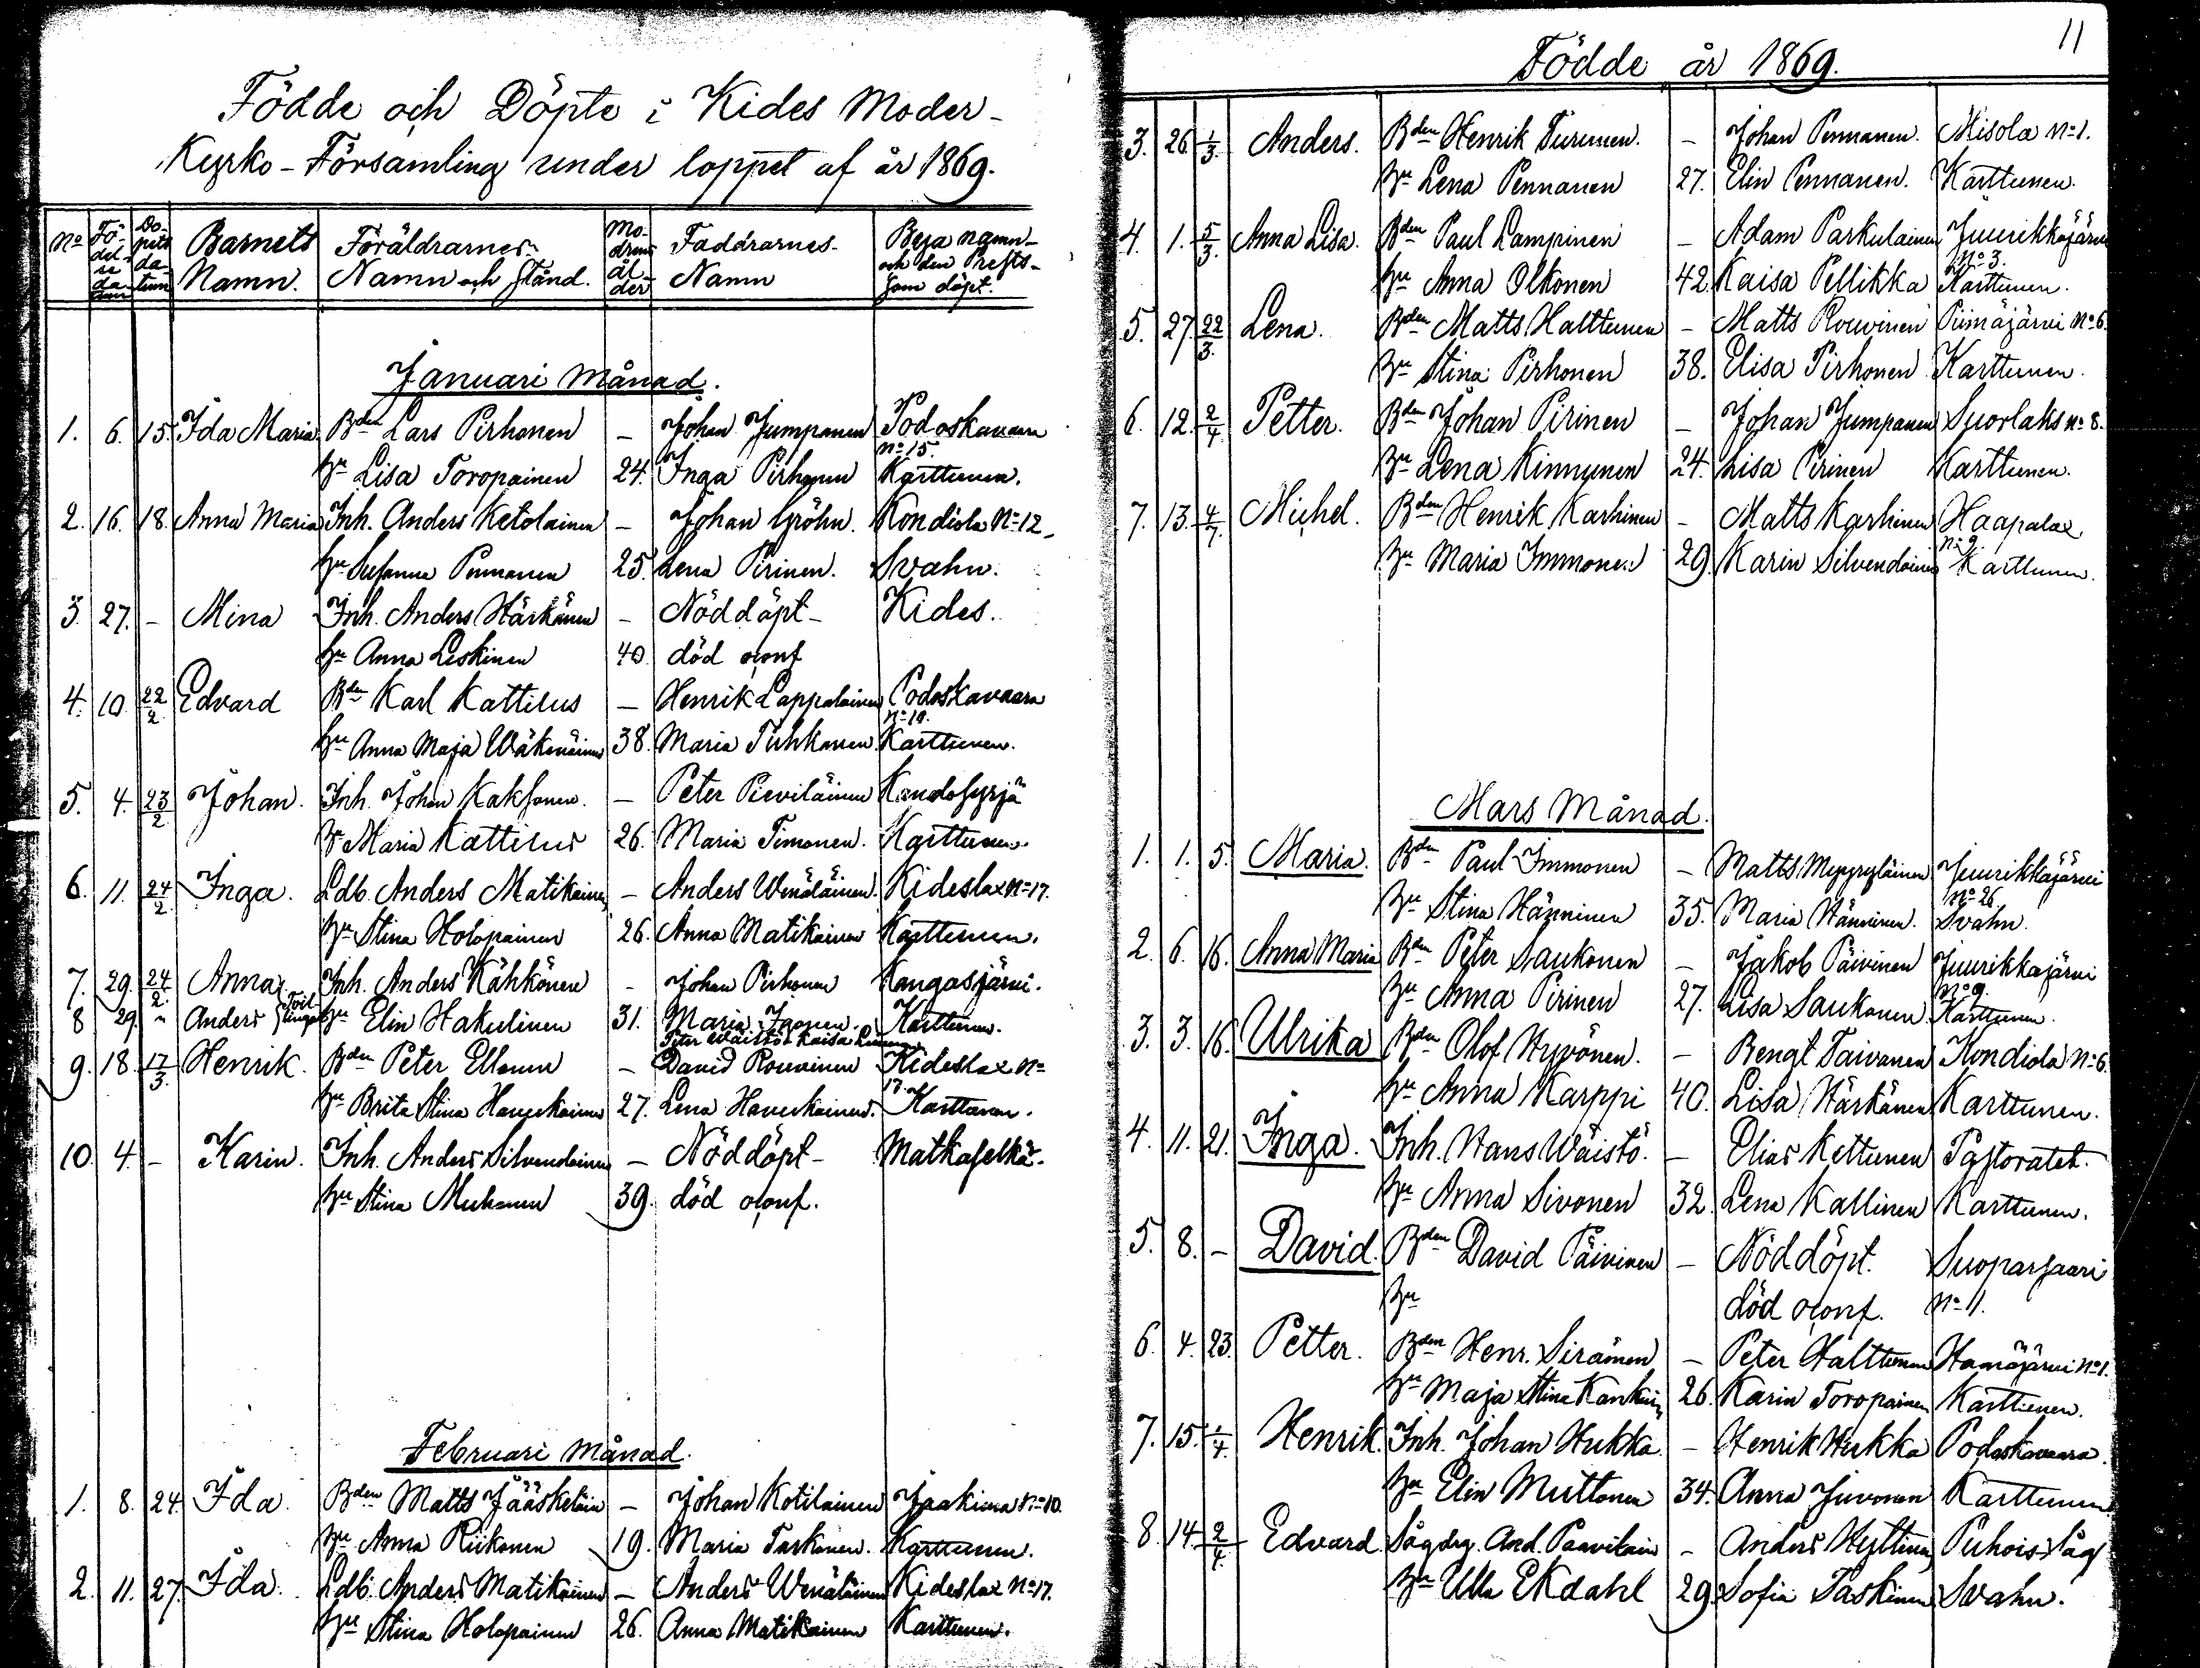 Födde och Döpte i Kides Moder-
Kyrko-Församling under loppet af år 1869.
No Fö-del-se da-tum Dö-pits da-tum Barnets Namn. Föräldrarnes Namn och stånd. Mo-drens ål-der Faddrarnes Namn Byanamn och den Prests som döpt.
Januari Månad.
1. 6. 15. Ida Maria Bden Lars Pirhonen – Johan Jumpanen Podoskavaara No 15.
hu Lisa Toropainen 24. Inga Pirhonen Karttunen.
2. 16. 18. Anna Maria Inh. Anders Ketolainen – Johan Gröhn. Kondiola No 12
hu Susanna Pennanen 25. Lena Pirinen. Svahn.
3. 27. – Mina Inh. Anders Härkönen – Nöddöpt Kides.
hu Anna Leskinen 40. död oconf
4. 10 22/2 Edvard Bden Karl Kattilus – Henrik Lappalainen Podoskavaara No 19.
hu Anna Maja 38. Maria Tuhkanen Karttunen.
5. 4. 23/2 Johan. Inh. Johan Kaksonen. – Peter
hu Maria Kattilus 26. Maria Timonen. Karttunen.
6. 11. 24/2 Inga. Ldb. Anders Matikainen – Anders Wenäläinen. Kideslax No 17.
hu Stina Holopainen 26. Anna Matikainen Karttunen.
7. 29. 24/2. Anna Inh. Anders Kähkönen – Johan Pirhonen Kangasjärvi.
8 29. " Anders Tvillingar hu Elin Hakulinen 31. Maria Karttunen.
Peter Wäistö Kaisa
9. 18. 17/3. Henrik. Bden Peter Ellonen – David Rouvinen Kideslax No 17.
hu Brita Stina Haverkainen 27. Lena Haverkainen. Karttunen.
10. 4. – Karin. Inh. Anders Silvendoinen – Nöddöpt Matkaselkä.
hu Stina Mukonen 39. död oconf.
Februari Månad.
1. 8. 24. Ida. Bden Matts Jääskeläin – Johan Kotilainen Jaakima No 10.
hu Anna Riikonen 19. Maria Taskinen. Karttunen.
2. 11. 27. Ida. Ldb. Anders Matikainen – Anders Wenäläinen Kideslax No 17.
hu Stina Holopainen 26. Anna Matikainen Karttunen.
11
Födde år 1869.
3. 26 1/3. Anders. Bden Henrik Turunen. – Johan Pennanen. Misola No 1.
hu Lena Pennanen 27. Elin Pennanen. Karttunen.
4. 1. 5/3. Anna Lisa. Bden Paul Lampinen – Adam Parkulainen Juurikkajärvi No 3.
hu Anna Olkonen 42. Kaisa Pellikka Karttunen.
5. 27 22/3. Lena. Bden Matts Halttunen – Matts Rouvinen Piimäjärvi No 6.
hu Stina Pirhonen 38. Elisa Pirhonen Karttunen.
6. 12. 2/4 Petter. Bden Johan Pirinen – Johan Jumpanen Suorlaks No 8.
hu Lena Kinnunen 24. Lisa Pirinen Karttunen.
7. 13. 4/7. Michel. Bden Henrik Karhinen – Matts Karhinen Haapalax No 9.
hu Maria Immonen 29. Karin Silvendoinen Karttunen.
Mars Månad.
1. 1. 5. Maria. Bden Paul Immonen – Matts Myyryläinen Juurikkajärvi No 26.
hu Stina Hänninen 35. Maria Hänninen. Svahn.
2. 6. 16. Anna Maria Bden Peter Saukonen – Jakob Päivinen Juurikkajärvi No 9.
hu Anna Pirinen 27. Lisa Saukonen Karttunen.
3. 3. 16. Ulrika Bden Olof Hyvönen. – Bengt Taivanen Kondiola No 6.
hu Anna Karppi 40. Lisa Härkönen Karttunen.
4. 11. 21. Inga. Inh. Hans Wäistö. – Elias Kettunen Pastoratet.
hu Anna Sivonen 32. Lena Kallinen Karttunen.
5. 8. – David. Bden David Päivinen – Nöddöpt. Suoparsaari
hu död oconf. No 11.
6. 4. 23. Petter. Bden Henr. Siränen – Peter Halttunen No 1.
hu Maja Stina 26. Karin Toropainen Karttunen.
7. 15. 1/4. Henrik. Inh. Johan Hukka. – Henrik Hukka Podoskavaara.
hu Elin Muttonen 34. Anna Juvonen Karttunen
8. 14. 2/4 Edvard. Sågdrg. And. Paavilain – Anders Hyttinen Puhois såg
hu Ulla Ekdahl 29. Sofia Taskinen Svahn.